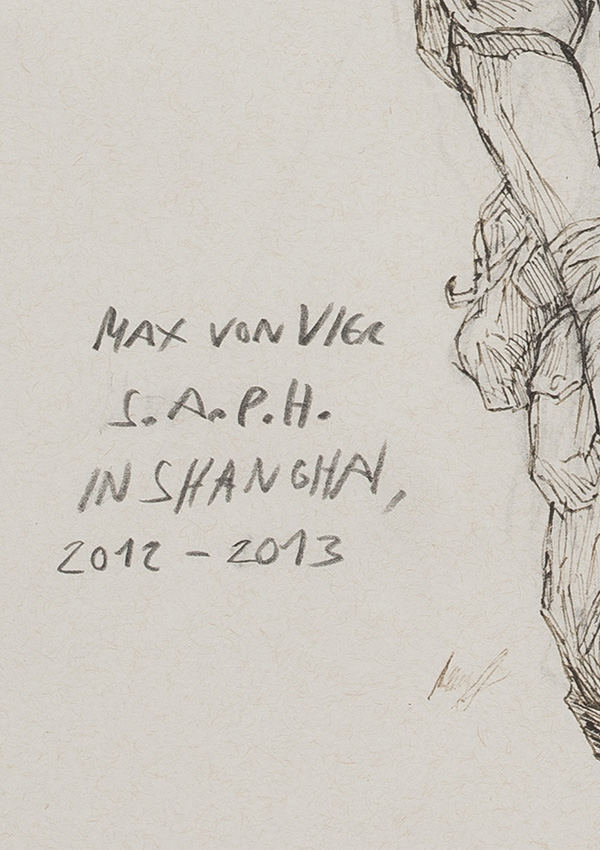 MAX VON VIER
S.A.P.H.
IN SHANGHAI,
2012 - 2013